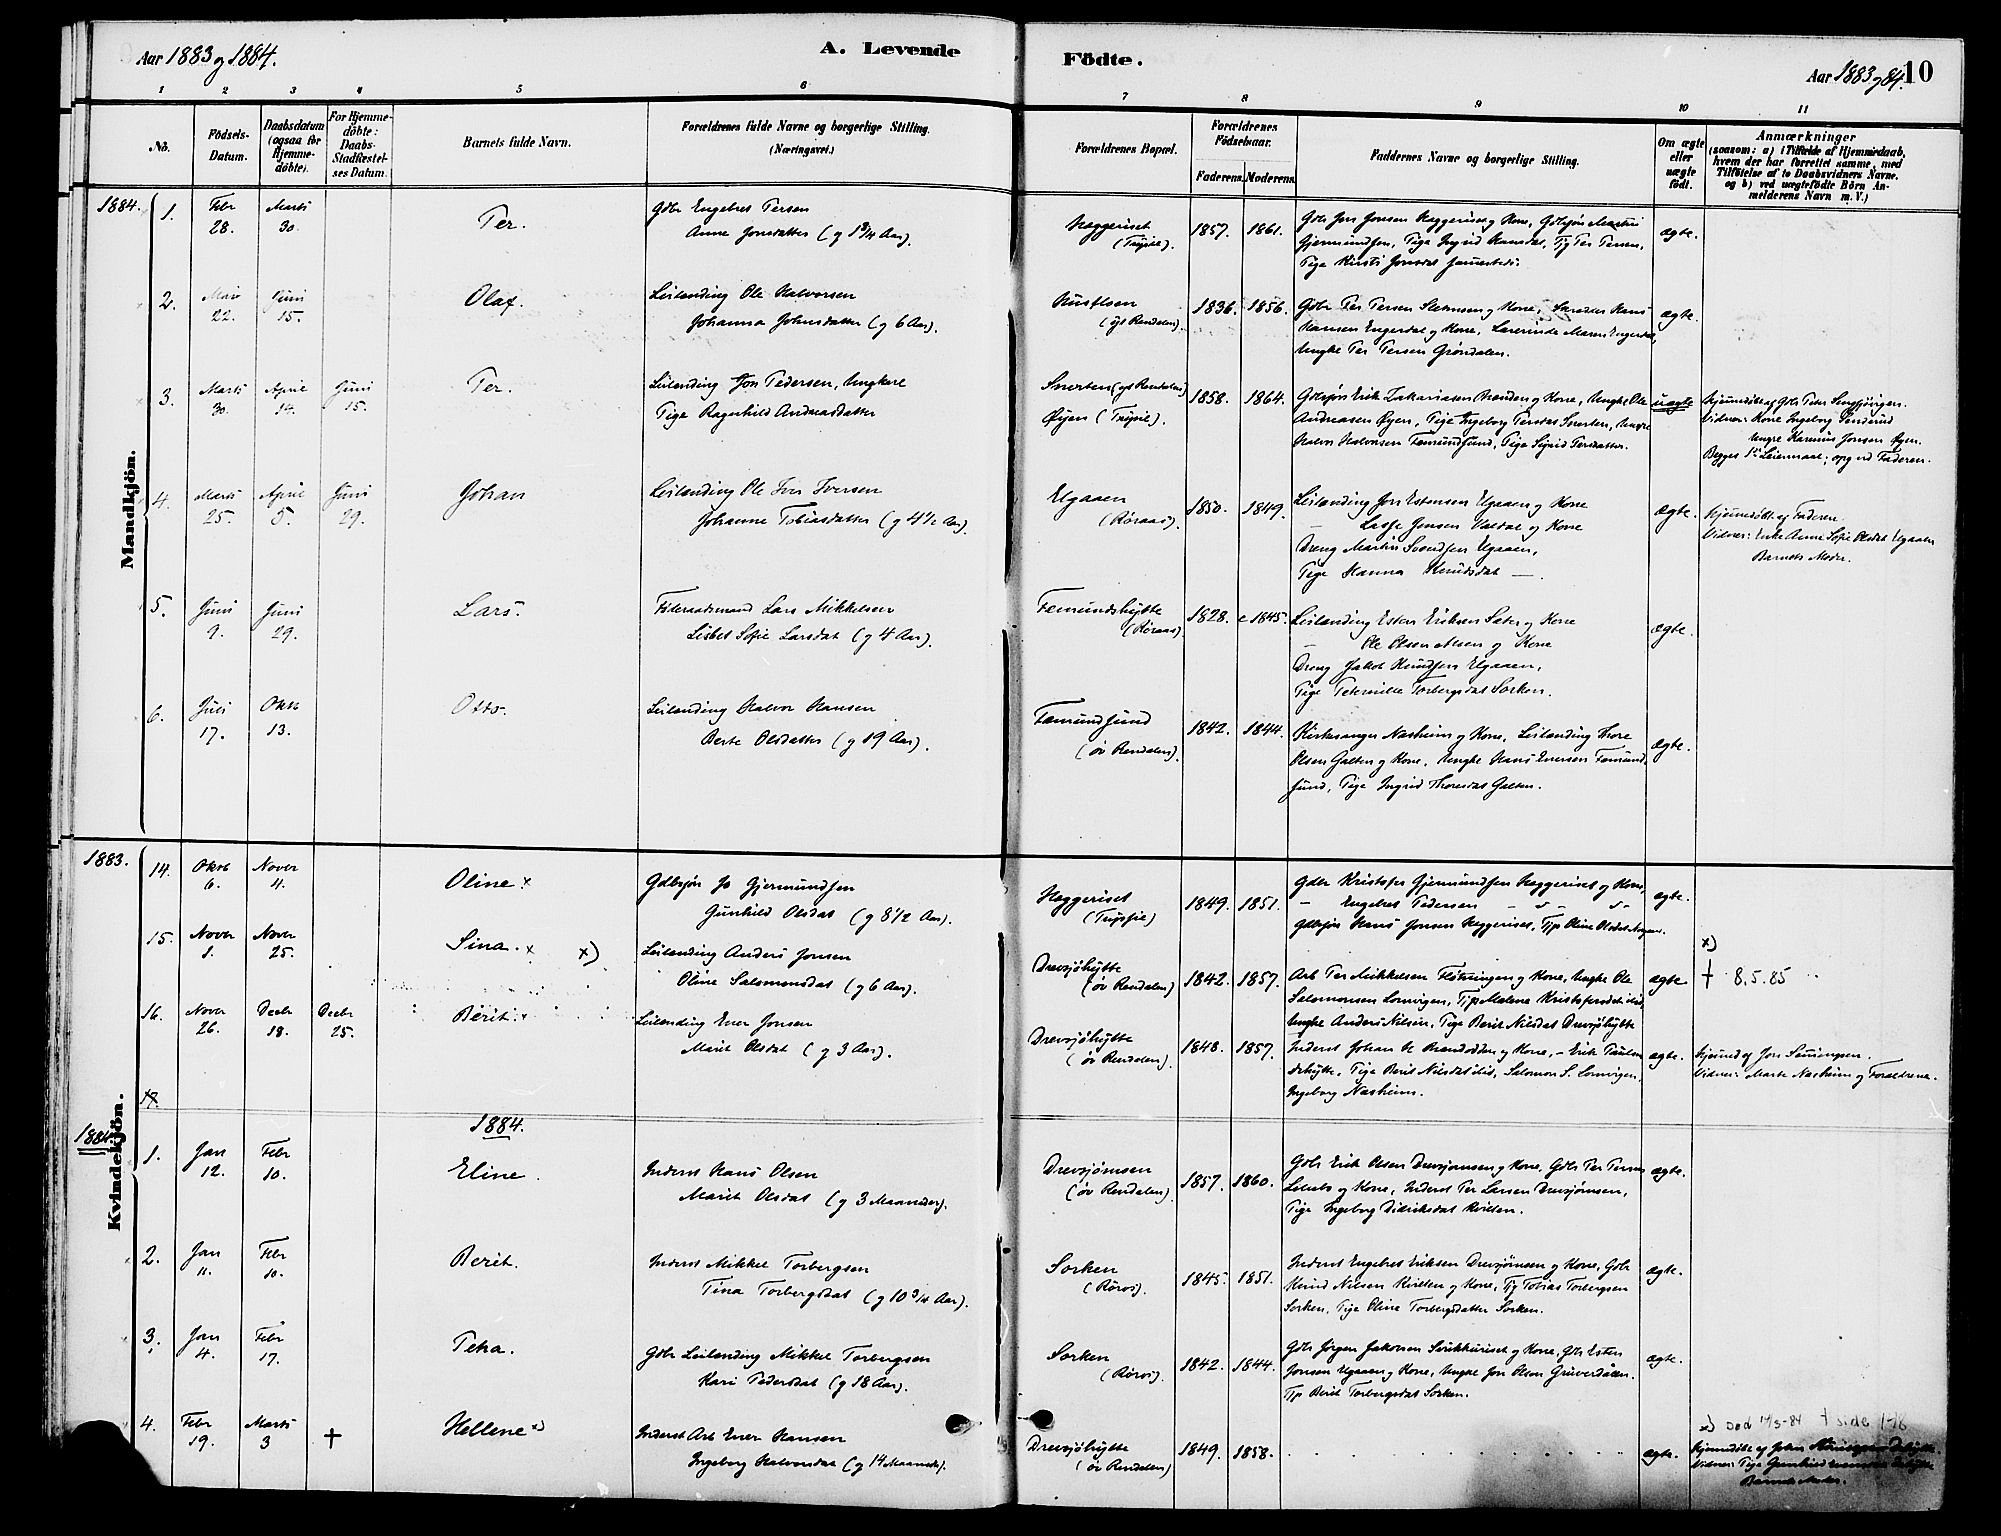 Aar 1883 og 1884.
A. Levende
Födte.
Aar 1883 og 84. 10
1 2 3 4 5 6 7 8 9 10 11
No.
Födsels-
Datum.
Daabsdatum
(ogsaa for
Hjemme-
döbte).
For Hjemme-
döbte:
Daabs-
Stadfæstel-
ses Datum.
Barnets fulde Navn.
Forældrenes fulde Navne og borgerlige Stilling.
(Næringsvei.)
Forældrenes Bopæl.
Forældrenes
Födselsaar.
Faderens. Moderens.
Faddernes Navne og borgerlige Stilling.
Om ægte
eller
uægte
födt.
Anmærkninger
(saasom: a) i Tilfælde af Hjemmedaab,
hvem der har forrettet samme, med
Tilföielse af to Daabsvidners Navne,
og b) ved uægtefödte Börn An-
melderens Navn m. V.)
Mandkjön.
1884.
1. Febr 28. Marts 30. Per.
Gdbr Engebret Persen
Anne Jonsdatter (g 1 3/4 Aar).
Haggeriset
(Trysil).
1857. 1861.
Gdb Jon Jonsen Haggeriset og Kone, Gdbsjøn Martin
Gjermundsen, Pige Ingrid Hansdat, Tj Per Persen,
Pige Kirsti Jonsdat
ægte.
2. Mai 22. Juni 15. Olaf.
Leilænding Ole Halvorsen
Johanna Johnsdatter (g 6 Aar).
(yt Rendalen).
1836. 1856.
Gdbr Per Persen og Kone, Skrædder Hans
Hansen Engerdal og Kone, Lærerinde Maren Engerdal,
Ungke Per Persen Grøndalen.
ægte.
3. Marts 30. April 14. Juni 15. Per.
Leilænding Jon Pedersen, Ungkarl
Pige Ragnhild Andreasdatter
Snerten (yt Rendalen)
Øyen (Trysil).
1858. 1864.
Gdbsjøn Erik Zakariasen Brænden og Kone, Ungke Ole
Andreasen Øyen, Pige Ingeborg Persdat Snerten, Ungke
Halvor Halvorsen Fæmundsund, Pige Sigrid Persdatter.
uægte
Hjemmedøbt af Gdb Peter
Vidner: Kone Ingeborg
Ungke Jonsen Øyen.
Begges 1ste Leiermaal; opg ved Faderen.
4. Marts 25. April 5. Juni 29. Johan
Leilænding Ole Iver Iversen
Johanne Tobiasdatter (g 4 1/2 Aar).
Elgaaen
(Røraas).
1850. 1849.
Leilænding Jon Estensen Elgaaen og Kone
— Lasse Jonsen Valdal og Kone
Dreng Martin Svendsen Elgaaen,
Pige Hanna Knudsdat —.
ægte.
Hjemmedøbt af Faderen.
Vidner: Enke Anne Sofie Olsdat Elgaaen
Barnets Moder.
5. Juni 9. Juni 29. Lars.
Føderaadsmand Lars Mikkelsen
Lisbet Sofie Larsdat (g 4 Aar).
Fæmundshytte
(Røraas)
1828. 1845.
Leilænding Esten Eriksen Sæter og Kone
— Ole Olsen og Kone
Dreng Jakob Knudsen Elgaaen,
Pige Torbergsdat Sorken.
ægte.
6. Juli 17. Oktb 13. Otto.
Leilænding Halvor Hansen
Berte Olsdatter (g 19 Aar).
Fæmundsund
(øv Rendalen).
1842. 1844.
Kirkesanger Næsheim og Kone, Leilænding Thore
Olsen Galten og Kone, Ungke Hans Iversen Fæmund-
sund, Pige Ingrid Thoresdat Galten.
ægte.
Kvindekjön.
1883.
14. Oktb 6. Novbr 4. Oline x
Gdbsjøn Jo Gjermundsen
Gunhild Olsdat (g 8 1/2 Aar).
Haggeriset
(Trysil)
1849. 1851.
Gdbr Kristofer Gjermundsen Haggeriset og Kone,
— Engebret Pedersen
Gdbsjøn Hans Jonsen Haggeriset, Tjp Oline Olsdat
ægte.
15. Novbr 1. Novbr 25. Sina. x x)
Leilænding Anders Jonsen
Oline Salomonsdat (g 6 Aar).
Drevsjøhytte
(øv Rendalen)
1842. 1857.
Arb Per Mikkelsen Fløtningen og Kone, Ungke Ole
Salomonsen Lomvigen, Tjp Malene Kristofersdat
Ungke Anders Nilsen, Pige Berit Nilsdat Drevsjøhytte
ægte
x)
† 8.5.85
16. Novbr 26. Decbr 18. Decbr 25. Berit. x
Leilænding Iver Jonsen
Marit Olsdat (g 3 Aar).
Drevsjøhytte
(øv Rendalen)
1848. 1857.
Inderst Johan og Kone, — Erik Paulsen
Dshytte, Pige Berit Nilsdat, Salomon S. Lomvigen,
Ingeborg Næsheim.
ægte.
Hjemmd af Jon
Vidner: Marte Næsheim og Forældrene.
17.
1884
1884.
1. Jan 12. Febr 10. Eline.
Inderst Hans Olsen
Marit Olsdat (g 3 Maaneder).
Drevsjømoen
(øv Rendalen)
1857. 1860.
Gdb Erik Olsen Drevsjømoen og Kone, Gdb Per Persen
og Kone, Inderst Per Larsen Drevsjømoen,
Pige Ingeborg Didriksdat Kvilten.
ægte.
2. Jan 11. Febr 10. Berit.
Inderst Mikkel Torbergsen
Tina Torbergsdat (g 10 3/4 Aar).
Sorken
(Røros)
1845. 1851.
Inderst Engebret Eriksen Drevsjømoen og Kone, Gdb
Knud Nilsen Kvilten og Kone, Tj Tobias Torbergsen
Sorken, Pige Oline Torbergsdatter Sorken.
ægte.
3. Jan 4. Febr 17. Petra.
Gdb Leilænding Mikkel Torbergsen
Kari Pedersdat (g 18 Aar).
Sorken
(Røros).
1842. 1844.
Gdb Jørgen Jakobsen og Kone, Gdb Esten
Jonsen Elgaaen og Kone, Ungke Jon Olsen Grøverdalen.
Tjp Berit Torbergsdat Sorken.
ægte.
4. Febr 19. Marts 3 † Hellene x)
Inderst Arb Iver Hansen
Ingeborg Halvorsdat (g 14 Maaneder).
Drevsjøhytte
(øv Rendalen)
1849. 1858.
ægte.
x) Død 14/3-84 † side 178
Hjemmedøbt af John
Vidner: Pige Gunhild
Barnets Moder.